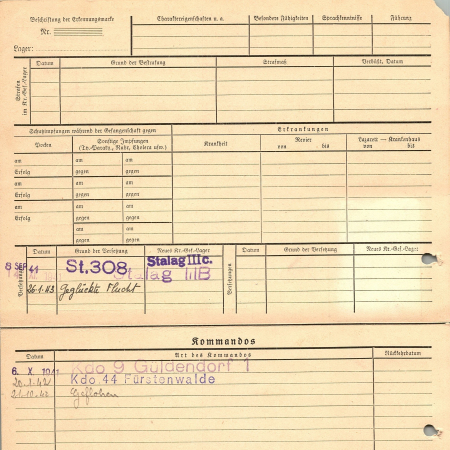 Beschriftung der Erkennungsmarke
Nr.
Lager:
Charaktereigenschaften u. a.
Besondere Fähigkeiten
Sprachkenntnisse
Führung
Strafen im Kr.-Gef.-Lager
Datum
Grund der Bestrafung
Strafmaß
Verbüßt, Datum
Schutzimpfungen während der Gefangenschaft gegen
Pocken
Sonstige Impfungen
(Ty.-Paraty., Ruhr, Cholera usw.)
Erkrankungen
Krankheit
Revier
von bis
Lazarett — Krankenhaus
von bis
am am am
Erfolg gegen gegen
am am am
Erfolg gegen gegen
am am am
Erfolg gegen gegen
am am
gegen gegen
Versetzungen
Datum
Grund der Versetzung
Neues Kr.-Gef.-Lager
Versetzungen
Datum
Grund der Versetzung
Neues Kr.-Gef.-Lager
8 SEP 41 St.308 Stalag III c.
Stalag III B
26.1.43 Geglückte Flucht
Kommandos
Datum
Art des Kommandos
Rückkehrdatum
6. X. 1941 Kdo 9 Güldendorf 1
20.1.42 Kdo.44 Fürstenwalde
21.10.42 Geflohen